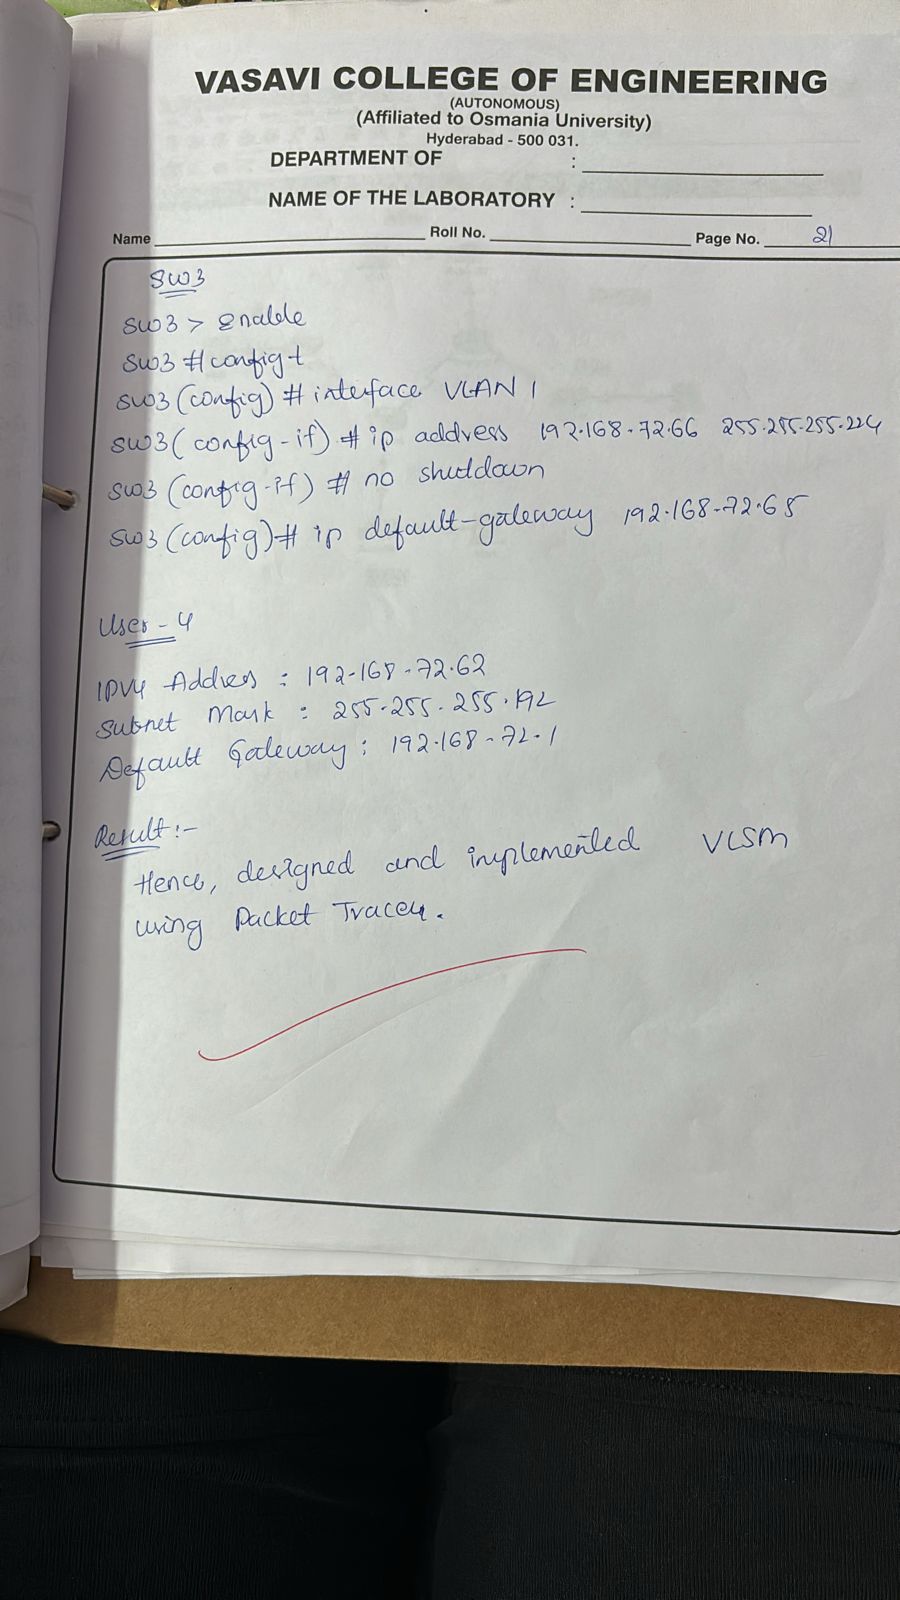 VASAVI COLLEGE OF ENGINEERING
(AUTONOMOUS)
(Affiliated to Osmania University)
Hyderabad - 500 031.
DEPARTMENT OF :
NAME OF THE LABORATORY :
Name Roll No. Page No. 21
SW3
SW3 > Enable
SW3 # config t
SW3 (config) # interface VLAN 1
SW3 (config-if) # ip address 192.168.72.66 255.255.255.224
SW3 (config-if) # no shutdown
SW3 (config) # ip default-gateway 192.168.72.65
User - 4
IPV4 Address : 192.168.72.62
Subnet Mask : 255.255.255.192
Default Gateway : 192.168.72.1
Result :-
Hence, designed and implemented VLSM
using Packet Tracer.